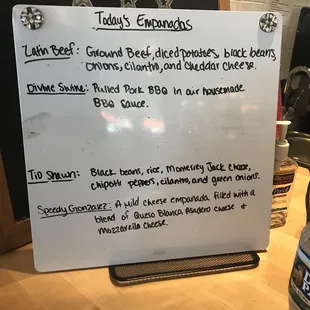 Today's Empanadas
Latin Beef: Ground Beef, diced potatoes, black beans,
onions, cilantro, and cheddar cheese.
Divine Swine: Pulled Pork BBQ in our housemade
BBQ Sauce.
Tio Shawn: Black beans, rice, Monterey Jack cheese,
chipotle peppers, cilantro, and green onions.
Speedy Gonzalez: A mild cheese empanada filled with a
blend of Queso Blanco, Asadero cheese &
Mozzarella cheese.